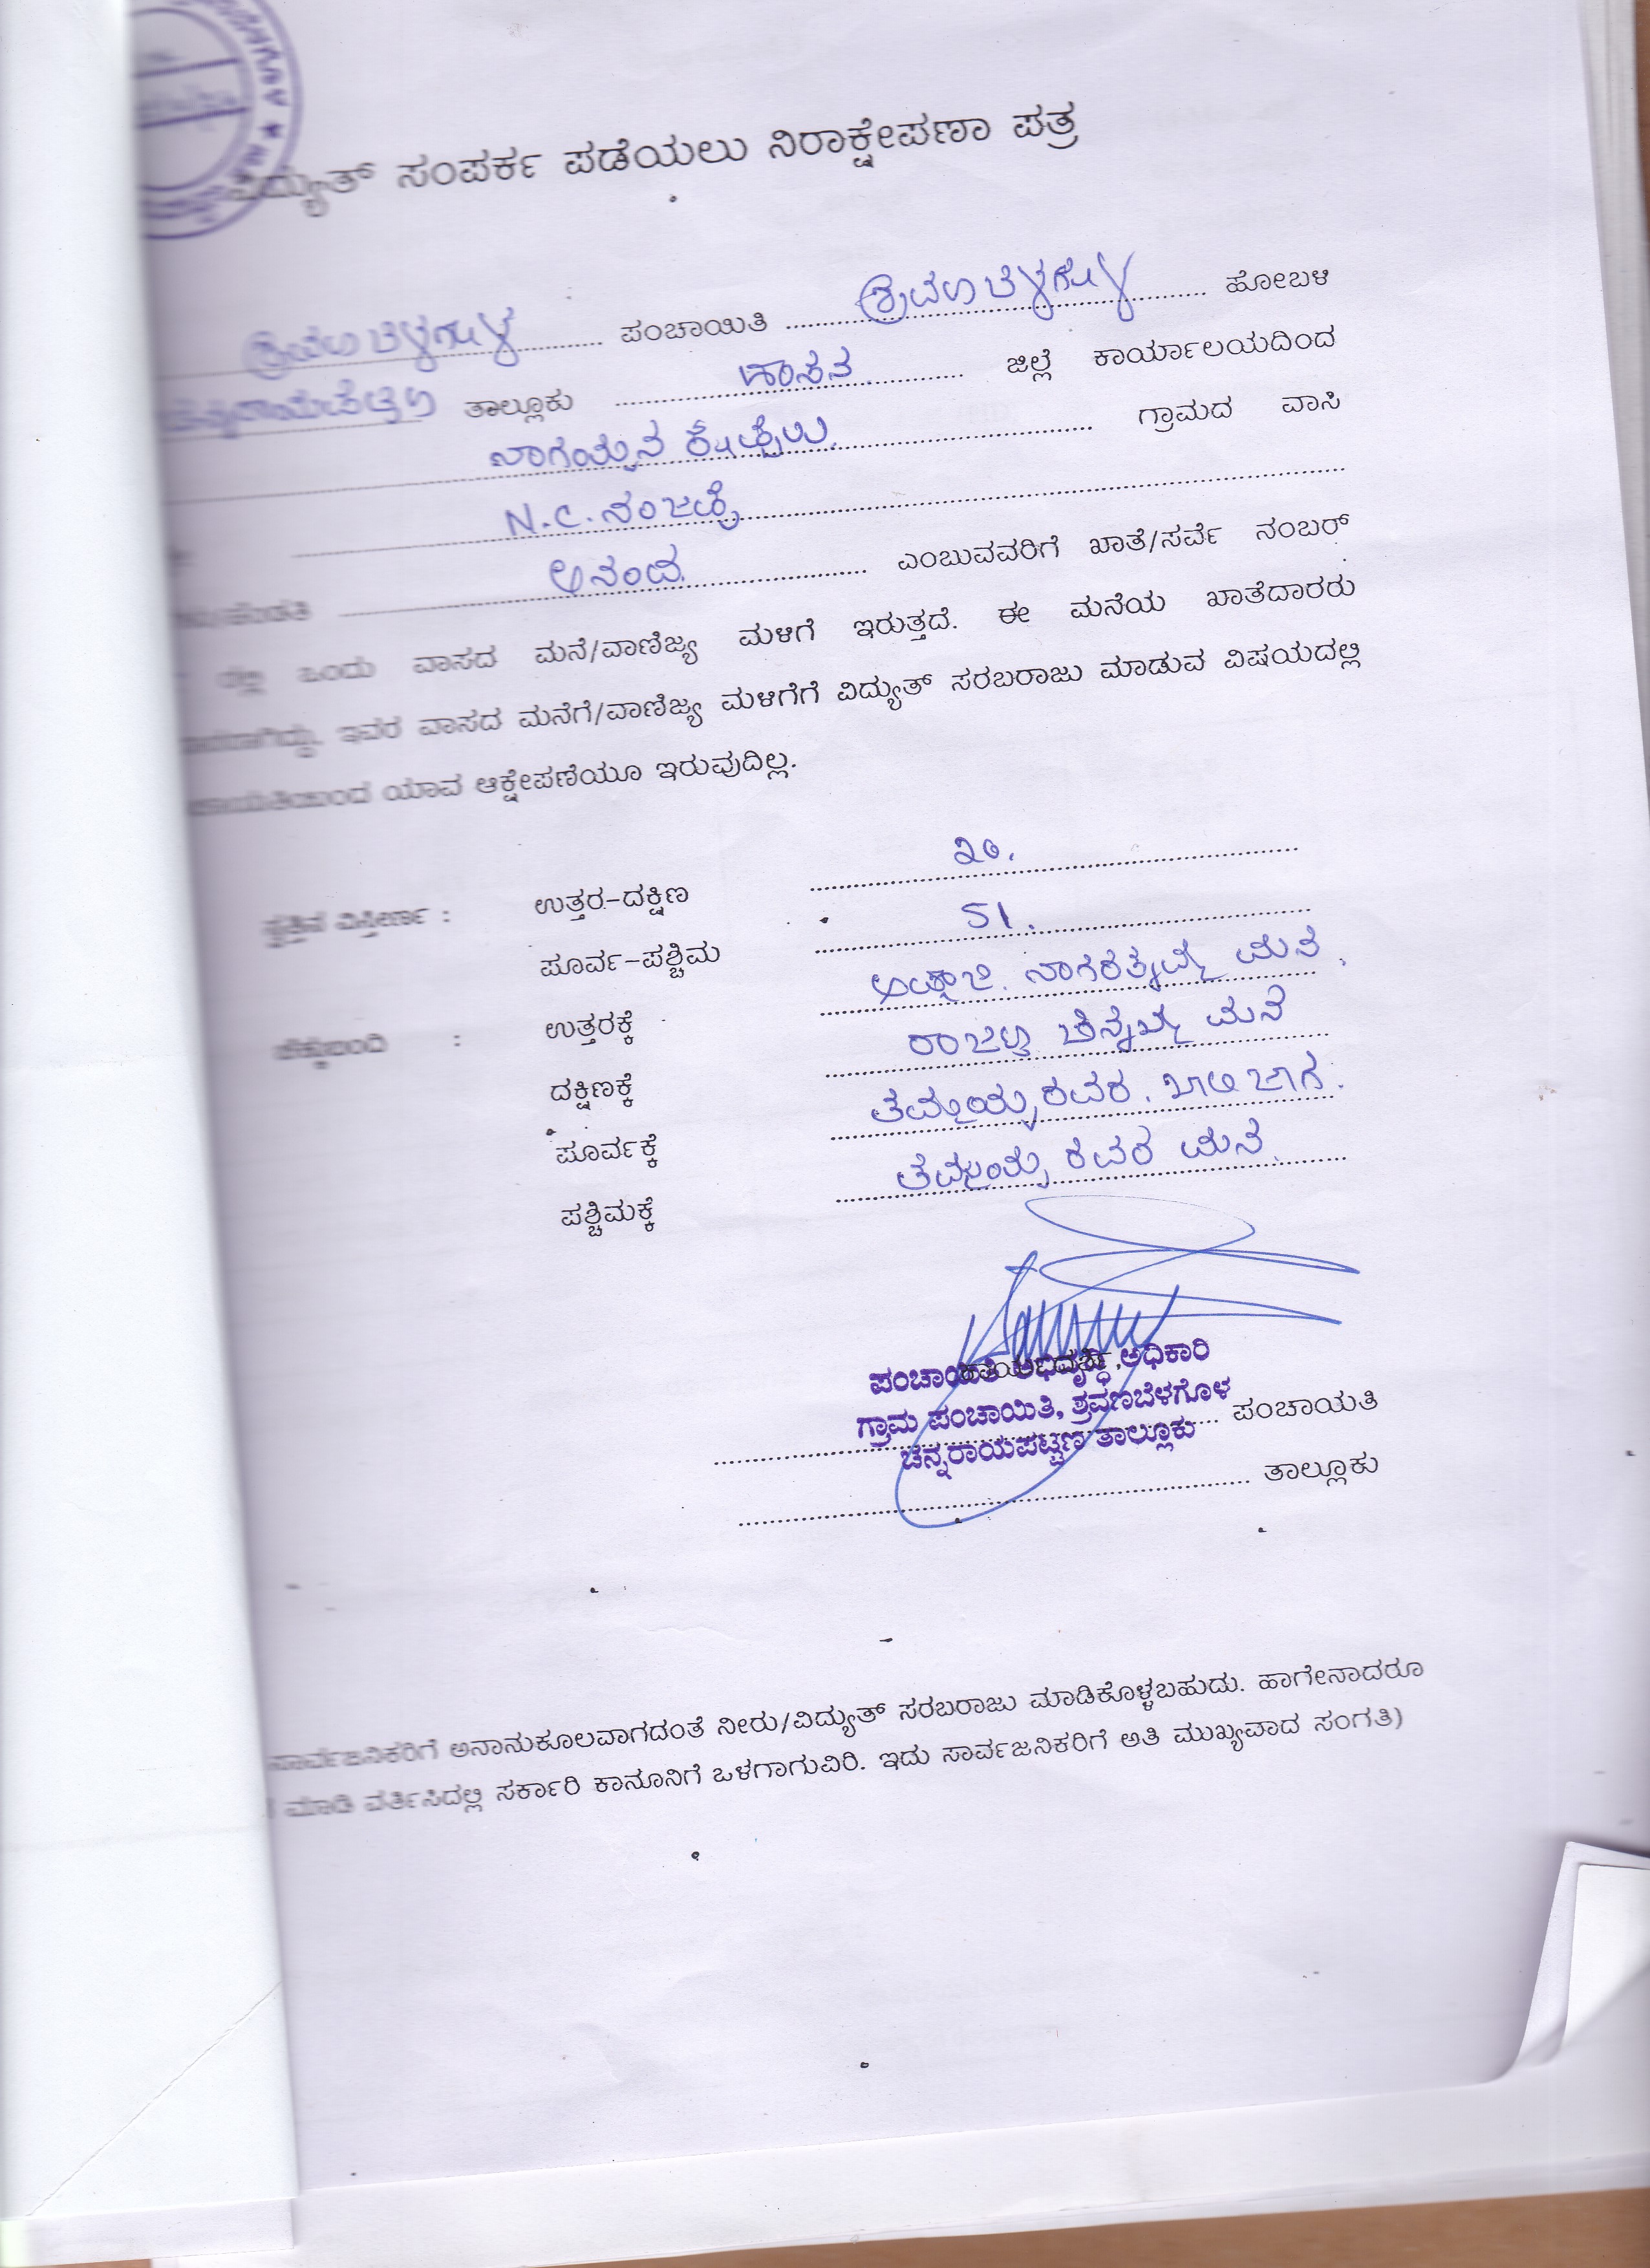 ವಿದ್ಯುತ್ ಸಂಪರ್ಕ ಪಡೆಯಲು ನಿರಾಕ್ಷೇಪಣಾ ಪತ್ರ
ಶ್ರವಣಬೆಳಗೊಳ ಪಂಚಾಯಿತಿ ಶ್ರವಣಬೆಳಗೊಳ ಹೋಬಳಿ
ತಾಲ್ಲೂಕು ಹಾಸನ ಜಿಲ್ಲೆ ಕಾರ್ಯಾಲಯದಿಂದ
ಗ್ರಾಮದ ವಾಸಿ
N.C. ನಂಜಪ್ಪ
ಆನಂದ ಎಂಬುವವರಿಗೆ ಖಾತೆ/ಸರ್ವೆ ನಂಬರ್
ರಲ್ಲಿ ಒಂದು ವಾಸದ ಮನೆ/ವಾಣಿಜ್ಯ ಮಳಿಗೆ ಇರುತ್ತದೆ. ಈ ಮನೆಯ ಖಾತೆದಾರರು
ಇವರ ವಾಸದ ಮನೆಗೆ/ವಾಣಿಜ್ಯ ಮಳಿಗೆಗೆ ವಿದ್ಯುತ್ ಸರಬರಾಜು ಮಾಡುವ ವಿಷಯದಲ್ಲಿ
ಯಾವ ಆಕ್ಷೇಪಣೆಯೂ ಇರುವುದಿಲ್ಲ.
ಸ್ವತ್ತಿನ ವಿಸ್ತೀರ್ಣ : ಉತ್ತರ-ದಕ್ಷಿಣ ೩೦.
ಪೂರ್ವ-ಪಶ್ಚಿಮ 51.
ಚೆಕ್ಕುಬಂದಿ : ಉತ್ತರಕ್ಕೆ ನಾಗರತ್ನಮ್ಮ ಮನೆ.
ದಕ್ಷಿಣಕ್ಕೆ ಮನೆ
ಪೂರ್ವಕ್ಕೆ ತಮ್ಮಯ್ಯರವರ. ಖಾಲಿ ಜಾಗ.
ಪಶ್ಚಿಮಕ್ಕೆ ತಮ್ಮಯ್ಯ ರವರ ಮನೆ.
ಪಂಚಾಯಿತಿ ಅಭಿವೃದ್ಧಿ ಅಧಿಕಾರಿ
ಗ್ರಾಮ ಪಂಚಾಯಿತಿ, ಶ್ರವಣಬೆಳಗೊಳ ಪಂಚಾಯತಿ
ಚನ್ನರಾಯಪಟ್ಟಣ ತಾಲ್ಲೂಕು
ತಾಲ್ಲೂಕು
ಸಾರ್ವಜನಿಕರಿಗೆ ಅನಾನುಕೂಲವಾಗದಂತೆ ನೀರು/ವಿದ್ಯುತ್ ಸರಬರಾಜು ಮಾಡಿಕೊಳ್ಳಬಹುದು. ಹಾಗೇನಾದರೂ
ಮಾಡಿ ವರ್ತಿಸಿದಲ್ಲಿ ಸರ್ಕಾರಿ ಕಾನೂನಿಗೆ ಒಳಗಾಗುವಿರಿ. ಇದು ಸಾರ್ವಜನಿಕರಿಗೆ ಅತಿ ಮುಖ್ಯವಾದ ಸಂಗತಿ)